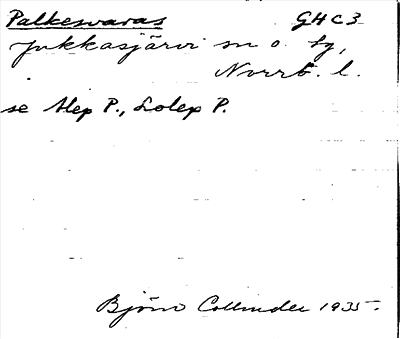 Palkesvaras GHC3
Jukkasjärvi sn o. tg,
Norrb. l.
se Alep P., Lolep P.
Björn Collinder 1935.